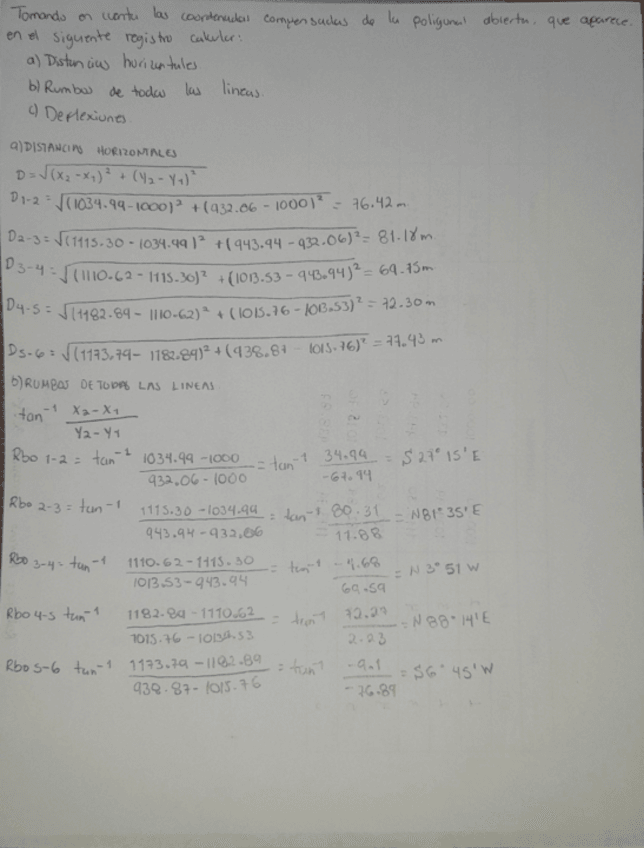 Tomando en cuenta las coordenadas compensadas de la poligonal abierta. que aparece.
en el siguiente registro calcular:
a) Distancias horizontales
b) Rumbos de todas las lineas.
c) Deflexiones
a) DISTANCIAS HORIZONTALES
D = √(X2 - X1)² + (Y2 - Y1)²
D1-2 = √(1034.99-1000)² + (932.06 - 1000)² = 76.42 m
D2-3 = √(1115.30 - 1034.99)² + (943.94 - 932.06)² = 81.18 m
D3-4 = √(1110.62 - 1115.30)² + (1013.53 - 943.94)² = 69.75m
D4-5 = √(1182.89 - 1110.62)² + (1015.76 - 1013.53)² = 72.30 m
D5-6 = √(1173.79 - 1182.89)² + (938.87 - 1015.76)² = 77.43 m
b) RUMBOS DE TODAS LAS LINEAS
tan⁻¹ X2-X1 / Y2-Y1
Rbo 1-2 = tan⁻¹ 1034.99 - 1000 / 932.06 - 1000 = tan⁻¹ 34.99 / -67.94 = S 27° 15' E
Rbo 2-3 = tan⁻¹ 1115.30 - 1034.99 / 943.94 - 932.06 = tan⁻¹ 80.31 / 11.88 = N81° 35' E
Rbo 3-4 = tan⁻¹ 1110.62 - 1115.30 / 1013.53 - 943.94 = tan⁻¹ -4.68 / 69.59 = N 3° 51 W
Rbo 4-5 tan⁻¹ 1182.89 - 1110.62 / 1015.76 - 1013.53 = tan⁻¹ 72.27 / 2.23 = N 88° 14' E
Rbo 5-6 tan⁻¹ 1173.79 - 1182.89 / 938.87 - 1015.76 = tan⁻¹ -9.1 / -76.89 = S6° 45' W